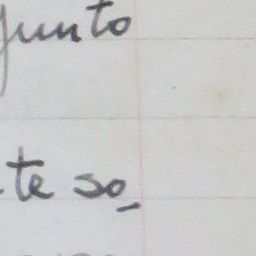 junto
te so_